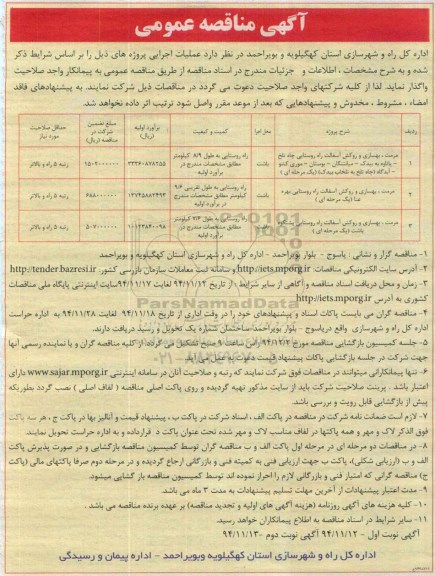 آگهی مناقصه عمومی
اداره کل راه و شهرسازی استان کهگیلویه و بویراحمد در نظر دارد عملیات اجرایی پروژه های ذیل را بر اساس شرایط ذکر
شده و به شرح مشخصات ، اطلاعات و جزئیات مندرج در اسناد مناقصه از طریق مناقصه عمومی به پیمانکار واجد صلاحیت
واگذار نماید. لذا از کلیه شرکتهای واجد صلاحیت دعوت می گردد در مناقصات ذیل شرکت نمایند. به پیشنهادهای فاقد
امضاء ، مشروط ، مخدوش و پیشنهادهایی که بعد از موعد مقرر واصل شود ترتیب اثر داده نخواهد شد.
ردیف شرح پروژه محل اجرا کمیت و کیفیت برآورد اولیه (ریال) مبلغ تضمین شرکت در مناقصه (ریال) حداقل صلاحیت مورد نیاز
۱ مرمت ، بهسازی و روکش آسفالت راه روستایی باشت راه روستایی به طول ۸/۹ کیلومتر مطابق مشخصات مندرج در برآورد اولیه رتبه ۵ راه و بالاتر
۲ مرمت ، بهسازی و روکش آسفالت راه روستایی (یک مرحله ای) باشت راه روستایی به طول تقریبی ۹/۶ کیلومتر مطابق مشخصات مندرج در برآورد اولیه رتبه ۵ راه و بالاتر
۳ مرمت ، بهسازی و روکش آسفالت راه روستایی باشت (یک مرحله ای) راه روستایی به طول ۷/۶ کیلومتر مطابق مشخصات مندرج در برآورد اولیه رتبه ۵ راه و بالاتر
۱- مناقصه گزار و نشانی : یاسوج - بلوار بویراحمد - اداره کل راه و شهرسازی استان کهگیلویه و بویراحمد
۲- آدرس سایت الکترونیکی مناقصات http://iets.mporg.ir وسامانه ثبت معاملات سازمان بازرسی کشور: http://tender.bazresi.ir
۳- زمان و محل دریافت اسناد مناقصه و آگاهی از سایر شرایط : از تاریخ ۹۴/۱۱/۱۲ لغایت ۹۴/۱۱/۱۷ سایت اینترنتی پایگاه ملی مناقصات
کشوری به آدرس http://iets.mporg.ir
۴- مناقصه گران می بایست پاکات اسناد و پیشنهادهای خود را در وقت اداری از تاریخ ۹۴/۱۱/۱۸ لغایت ۹۴/۱۱/۲۸ به اداره حراست
اداره کل راه و شهرسازی واقع در یاسوج - بلوار بویراحمد ساختمان شماره یک تحویل و رسید دریافت دارند.
۵- جلسه کمیسیون بازگشایی مناقصه مورخ ۹۴/۱۲/۲ راس ساعت ۹ صبح تشکیل می گردد. از کلیه مناقصه گران و یا نماینده رسمی آنها
جهت شرکت در جلسه بازگشایی پاکات پیشنهاد قیمت دعوت به عمل می آید.
۶- تنها پیمانکارانی میتوانند در مناقصات فوق شرکت نمایند که رتبه و صلاحیت آنان در سامانه اینترنتی www.sajar.mporg.ir دارای
اعتبار باشد . پرینت صلاحیت شرکت باید از سایت مذکور تهیه گردیده و روی پاکت اصلی مناقصه ( لفاف اصلی ) نصب گردد بطوریکه
پیش از بازگشایی قابل رویت و بررسی باشد.
۷- لازم است ضمانت نامه شرکت در مناقصه در پاکت الف ، اسناد شرکت در پاکت ب ، پیشنهاد قیمت و آنالیز بها در پاکت ج ، هر سه پاکت
فوق الذکر لاک و مهر و همه پاکتها در لفاف مناسب لاک و مهر شده تحت عنوان پاکت د قرارداده و به اداره حراست تحویل نمایند.
۸- در مناقصات دو مرحله ای در مرحله اول پاکت الف و ب مناقصه گران توسط کمیسیون مناقصه بازگشایی و در صورت پذیرش پاکت
الف و ب (ارزیابی شکلی)، پاکت ب جهت ارزیابی فنی به کمیته فنی و بازرگانی ارجاع گردیده و در مرحله دوم صرفا پاکتهای مالی (پاکت
ج) مناقصه گرانی که امتیاز فنی و بازرگانی لازم را احراز نموده اند توسط کمیسیون مناقصه باز گشایی میشود.
۹- مدت اعتبار پیشنهادات از آخرین مهلت تسلیم پیشنهادات به مدت ۳ ماه می باشد.
۱۰- کلیه هزینه های آگهی روزنامه (هزینه آگهی های اولیه و تجدید مناقصه) بر عهده برنده مناقصه می باشد .
۱۱- سایر شرایط در اسناد مناقصه به اطلاع پیمانکاران خواهد رسید.
آگهی نوبت اول - ۹۴/۱۱/۱۲ آگهی نوبت دوم - ۹۴/۱۱/۱۳
اداره کل راه و شهرسازی استان کهگیلویه وبویراحمد - اداره پیمان و رسیدگی